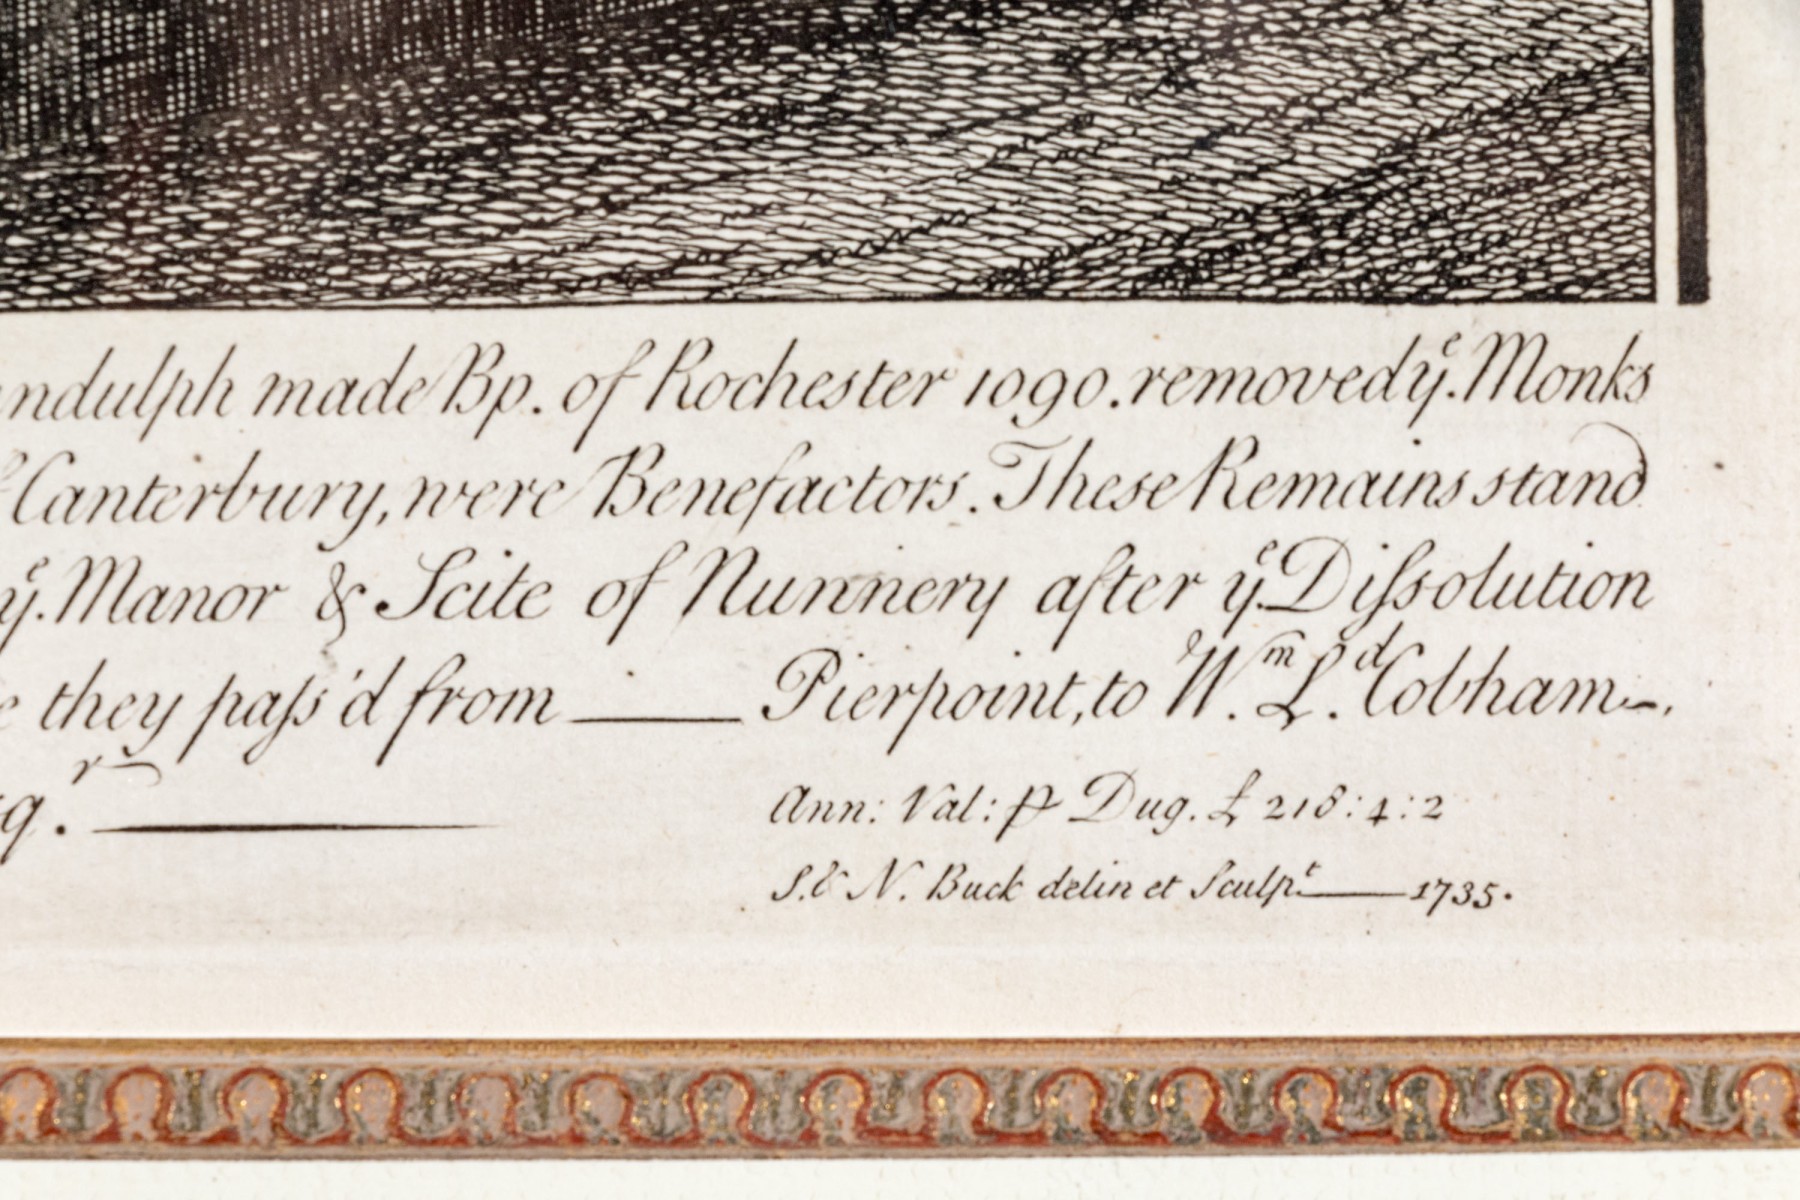 ndulph made Bp. of Rochester 1090. removed yᵉ. Monks
Canterbury, were Benefactors. These Remains stand
yᵉ. Manor & Scite of Nunnery after yᵉ. Diſsolution
they paſs'd from ——— Pierpoint, to Wᵐ. Lᵈ. Cobham ~.
qʳ. ———
Ann: Val: ⅌ Dug. £ 218:4:2
S. & N. Buck delin et Sculpᵗ. ——— 1735.